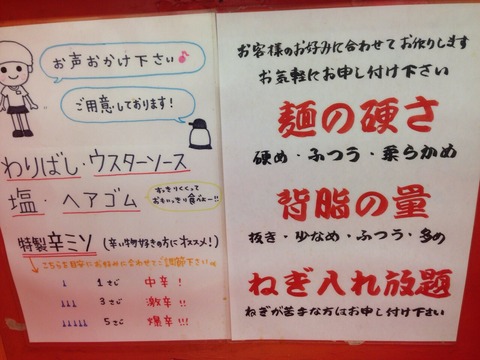 お声おかけ下さい♪
ご用意しております!
わりばし・ウスターソース
塩・ヘアゴム
すっきりくくって
おもいっきり食べよー!!
特製辛ミソ(辛い物好きの方にオススメ!)
こちらを目安にお好みに合わせてご調節下さい
1さじ 中辛!
3さじ 激辛!!
5さじ 爆辛!!!
お客様のお好みに合わせてお作りします
お気軽にお申し付け下さい
麺の硬さ
硬め・ふつう・柔らかめ
背脂の量
抜き・少なめ・ふつう・多め
ねぎ入れ放題
ねぎが苦手な方はお申し付け下さい